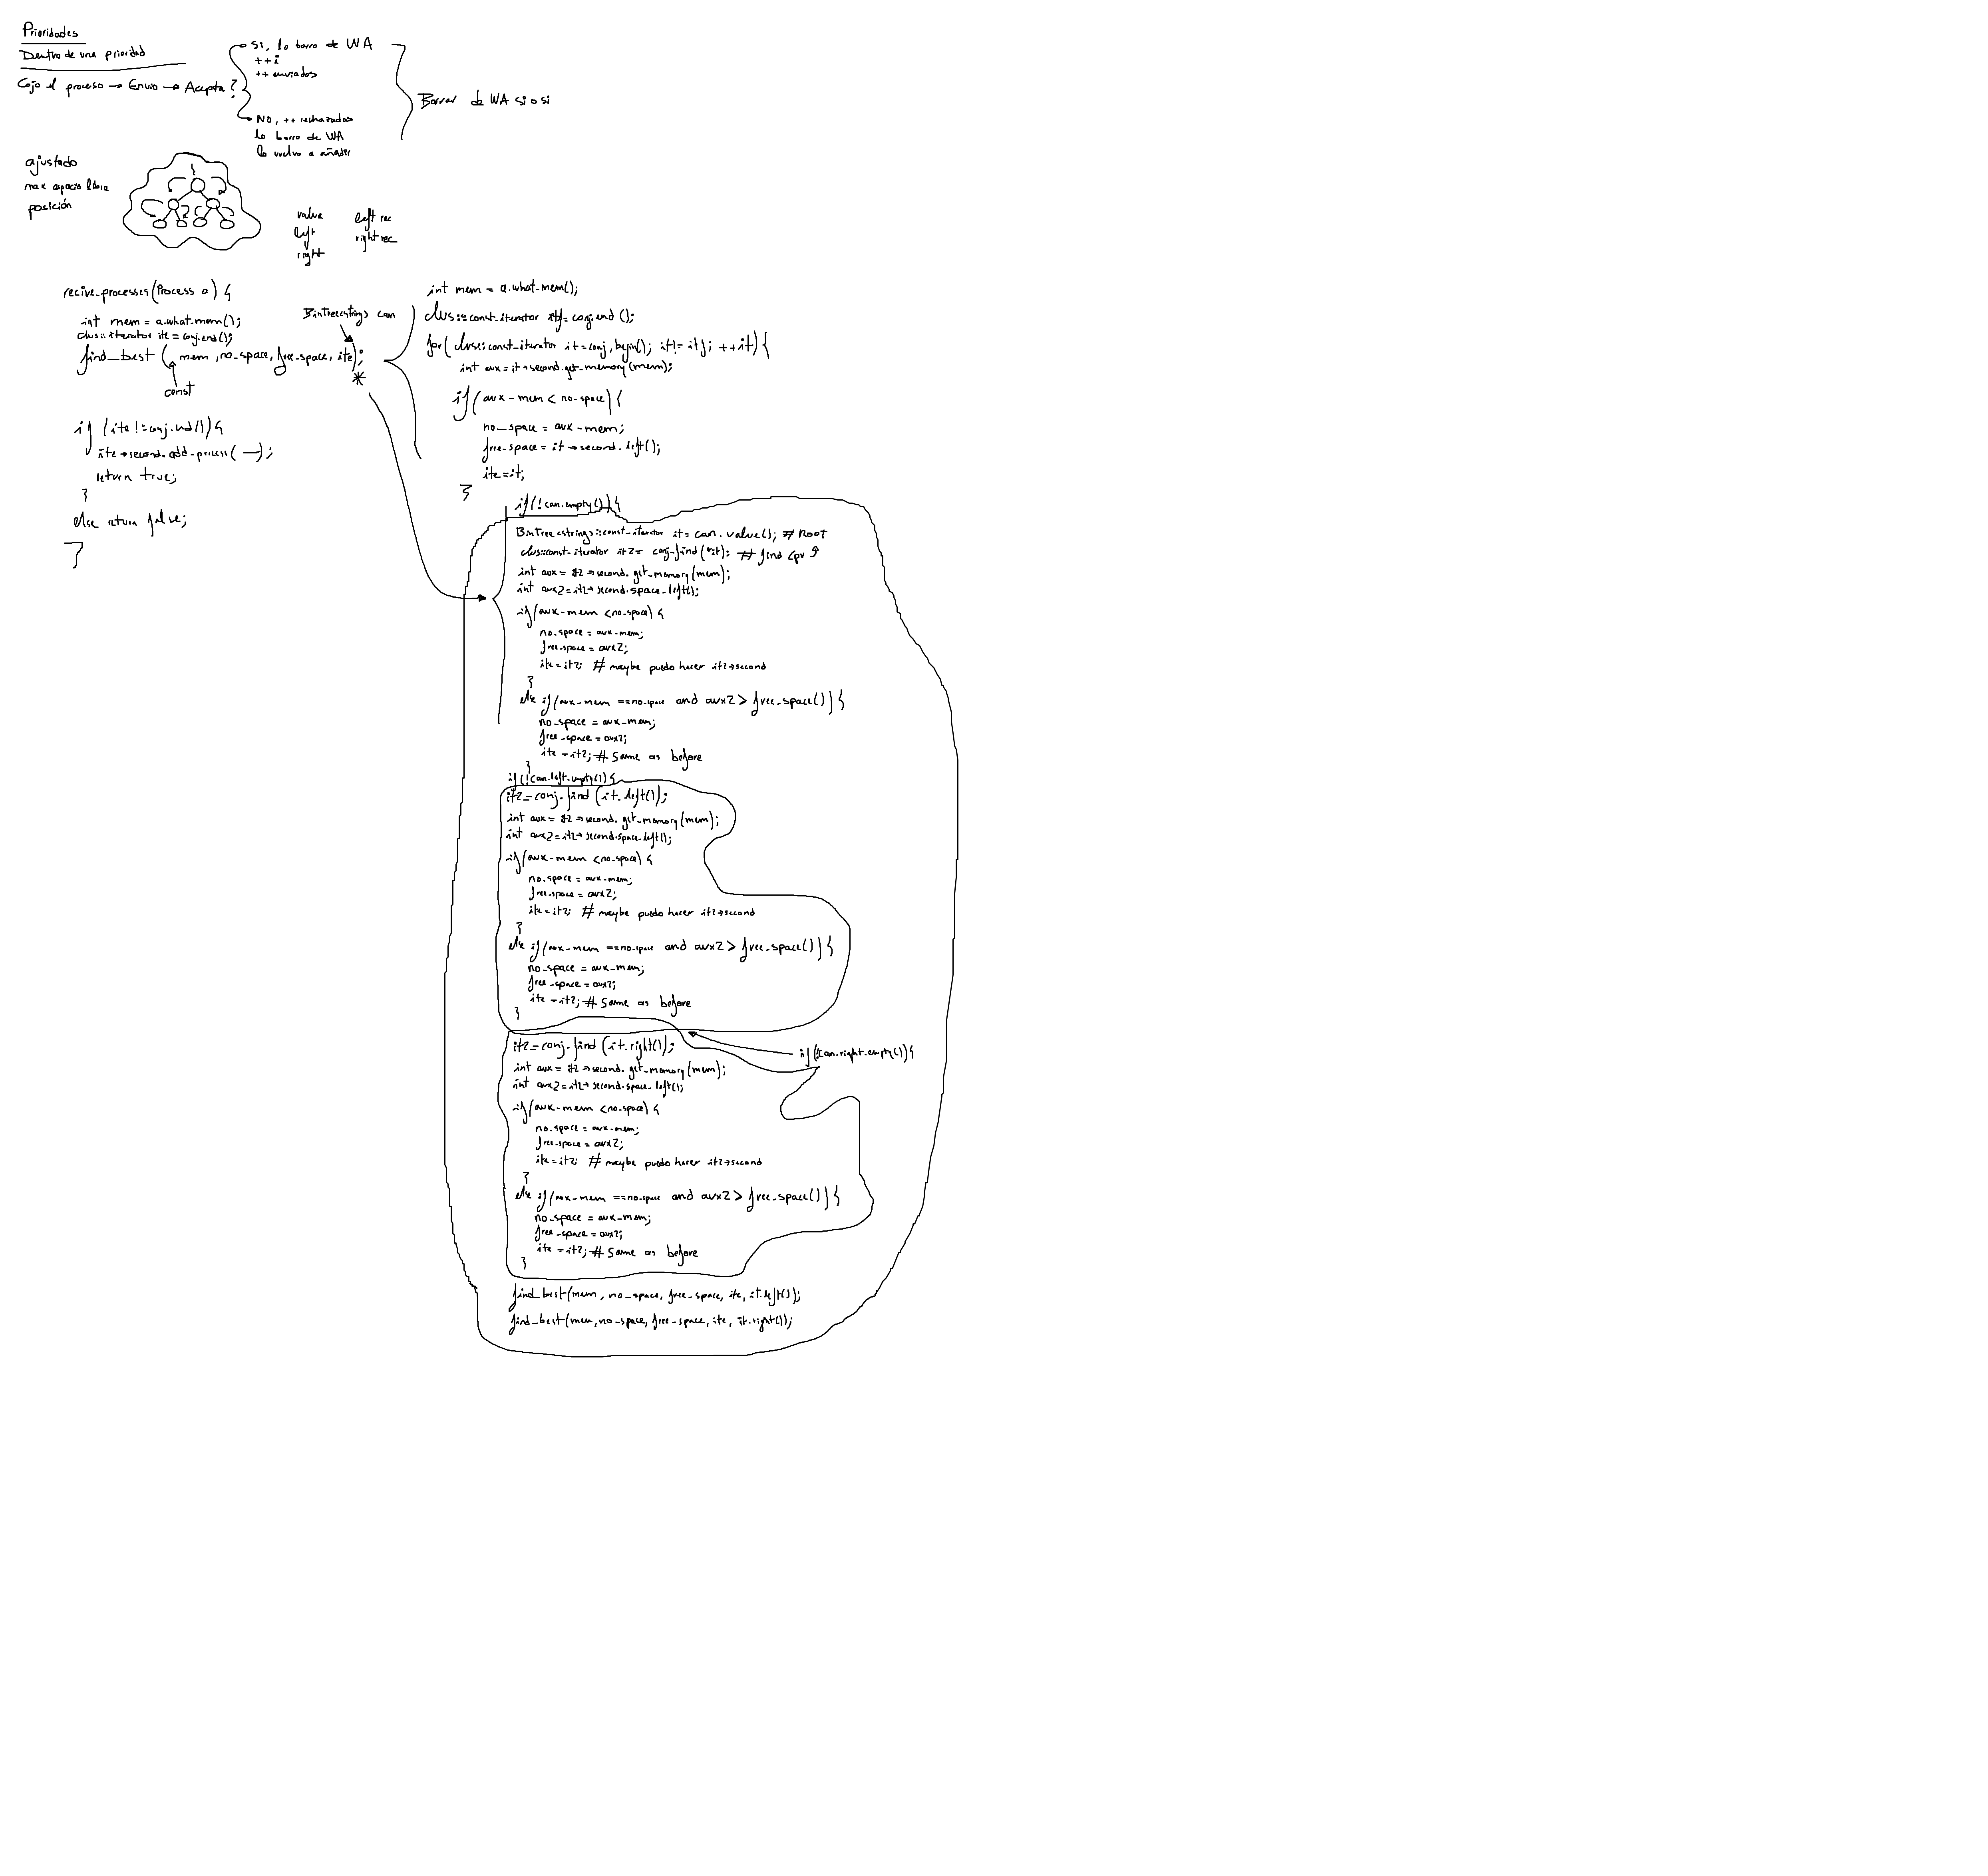 Prioridades
Dentro de una prioridad
Cojo el proceso → Envio → Acepta?
Si, lo borro de WA
++i
++ enviados
No, ++ rechazados
lo borro de WA
lo vuelvo a añadir
Borrar de WA si o si
ajustado
max espacio libre
posición
value
left
right
left rec
right rec
recive_processes(Process a) {
int mem = a.what_mem();
clus::iterator ite = conj.end();
find_best ( mem, no_space, free_space, ite);
const
Bintree<string> can
*
if (ite != conj.end()){
ite→second.add_process( — );
return true;
}
else return false;
}
int mem = a.what_mem();
clus::const_iterator itf = conj.end ();
for( clus::const_iterator it = conj.begin(); it != itf; ++it) {
int aux = it→second.get_memory(mem);
if (aux - mem < no_space) {
no_space = aux - mem;
free_space = it→second.left();
ite = it;
}
if (!can.empty()) {
Bintree<string>::const_iterator it = can.value(); # Root
clus::const_iterator it2 = conj.find(*it); # find cpu
int aux = it2→second.get_memory(mem);
int aux2 = it2→second.space_left();
if (aux - mem < no_space) {
no_space = aux - mem;
free_space = aux2;
ite = it2; # maybe puedo hacer it2→second
}
else if (aux - mem == no_space and aux2 > free_space()) {
no_space = aux - mem;
free_space = aux2;
ite = it2; # Same as before
}
if (!can.left.empty()) {
it2 = conj.find (it.left());
int aux = it2→second.get_memory(mem);
int aux2 = it2→second.space_left();
if (aux - mem < no_space) {
no_space = aux - mem;
free_space = aux2;
ite = it2; # maybe puedo hacer it2→second
}
else if (aux - mem == no_space and aux2 > free_space()) {
no_space = aux - mem;
free_space = aux2;
ite = it2; # Same as before
}
if (!can.right.empty()) {
it2 = conj.find (it.right());
int aux = it2→second.get_memory(mem);
int aux2 = it2→second.space_left();
if (aux - mem < no_space) {
no_space = aux - mem;
free_space = aux2;
ite = it2; # maybe puedo hacer it2→second
}
else if (aux - mem == no_space and aux2 > free_space()) {
no_space = aux - mem;
free_space = aux2;
ite = it2; # Same as before
}
find_best(mem, no_space, free_space, ite, it.left());
find_best(mem, no_space, free_space, ite, it.right());